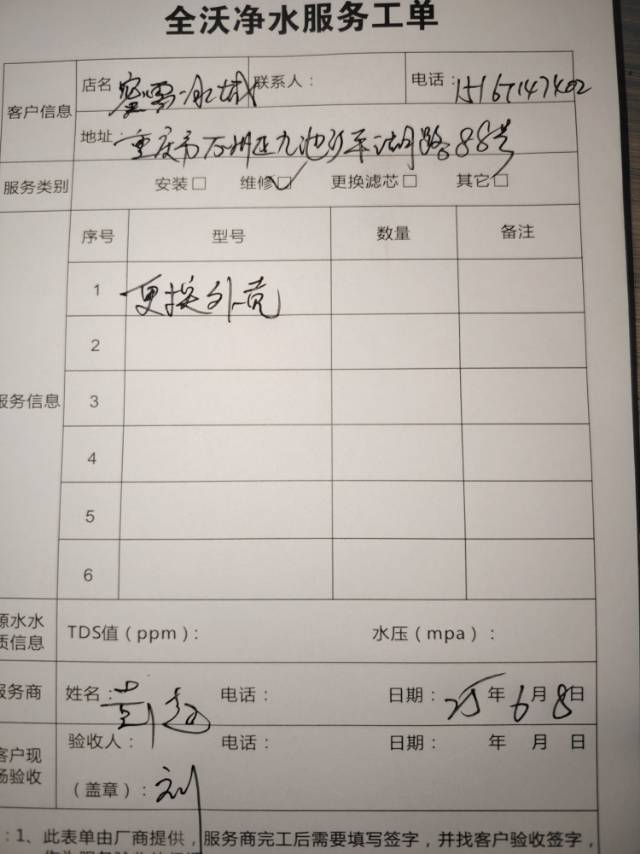 全沃净水服务工单
客户信息
店名 蜜雪冰城 联系人： 电话：15167147402
地址：重庆市万州区九池 平湖路 88号
服务类别 安装□ 维修☑ 更换滤芯□ 其它□
服务信息
序号 型号 数量 备注
1 更换外壳
2
3
4
5
6
原水水质信息
TDS值（ppm）： 水压（mpa）：
服务商 姓名： 电话： 日期：25年6月8日
客户现场验收
验收人： 电话： 日期： 年 月 日
（盖章）：刘
：1、此表单由厂商提供，服务商完工后需要填写签字，并找客户验收签字，